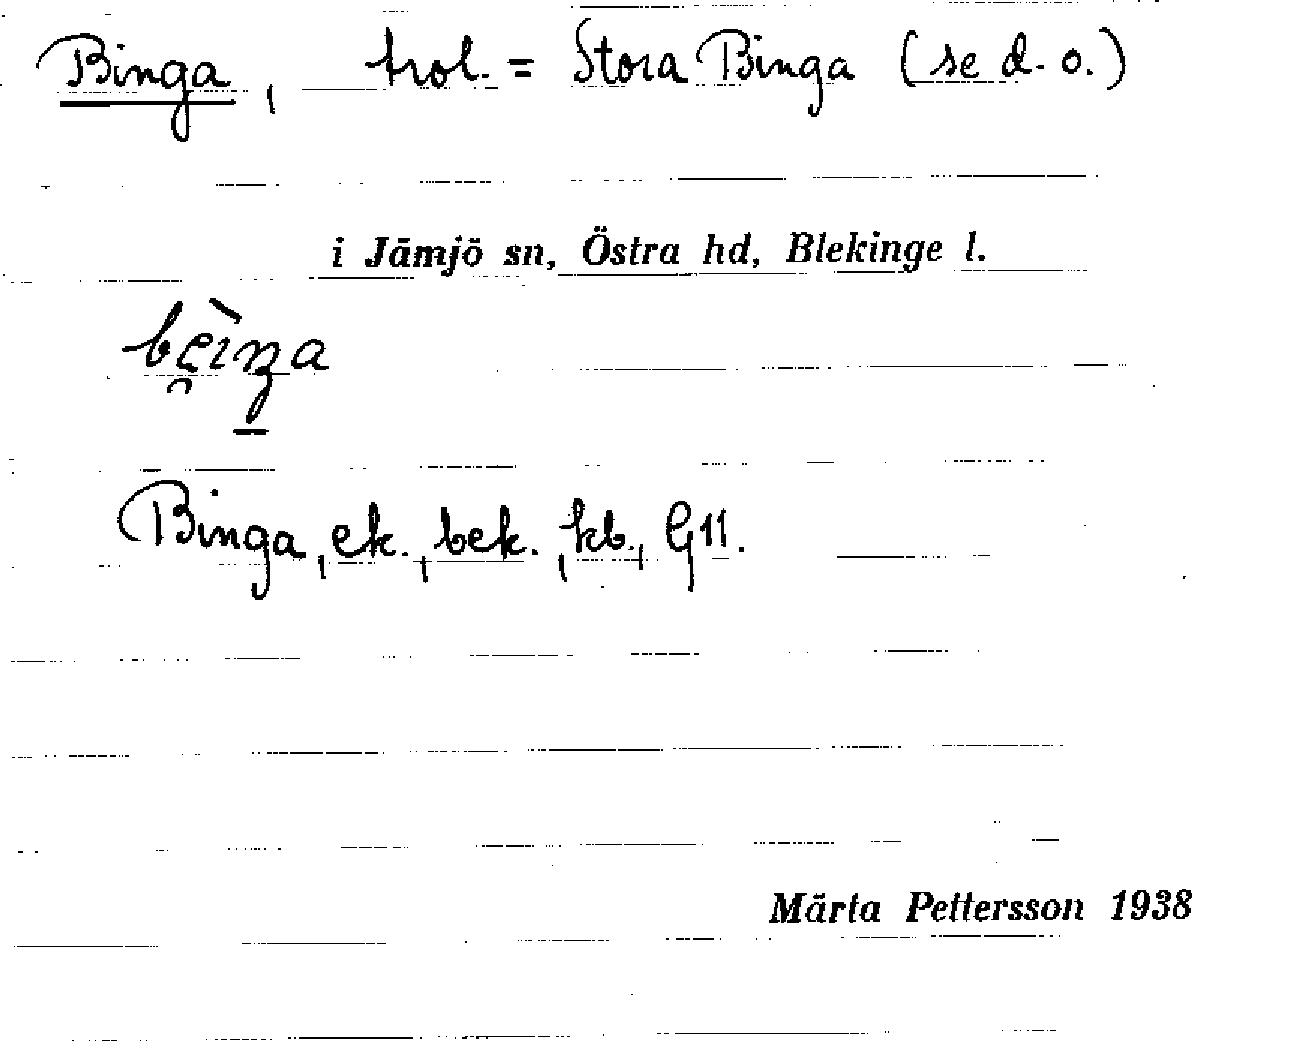 Binga, trol. = Stora Binga (se d. o.)
i Jämjö sn, Östra hd, Blekinge l.
Binga, ek., bek., kb., G11.
Märta Pettersson 1938